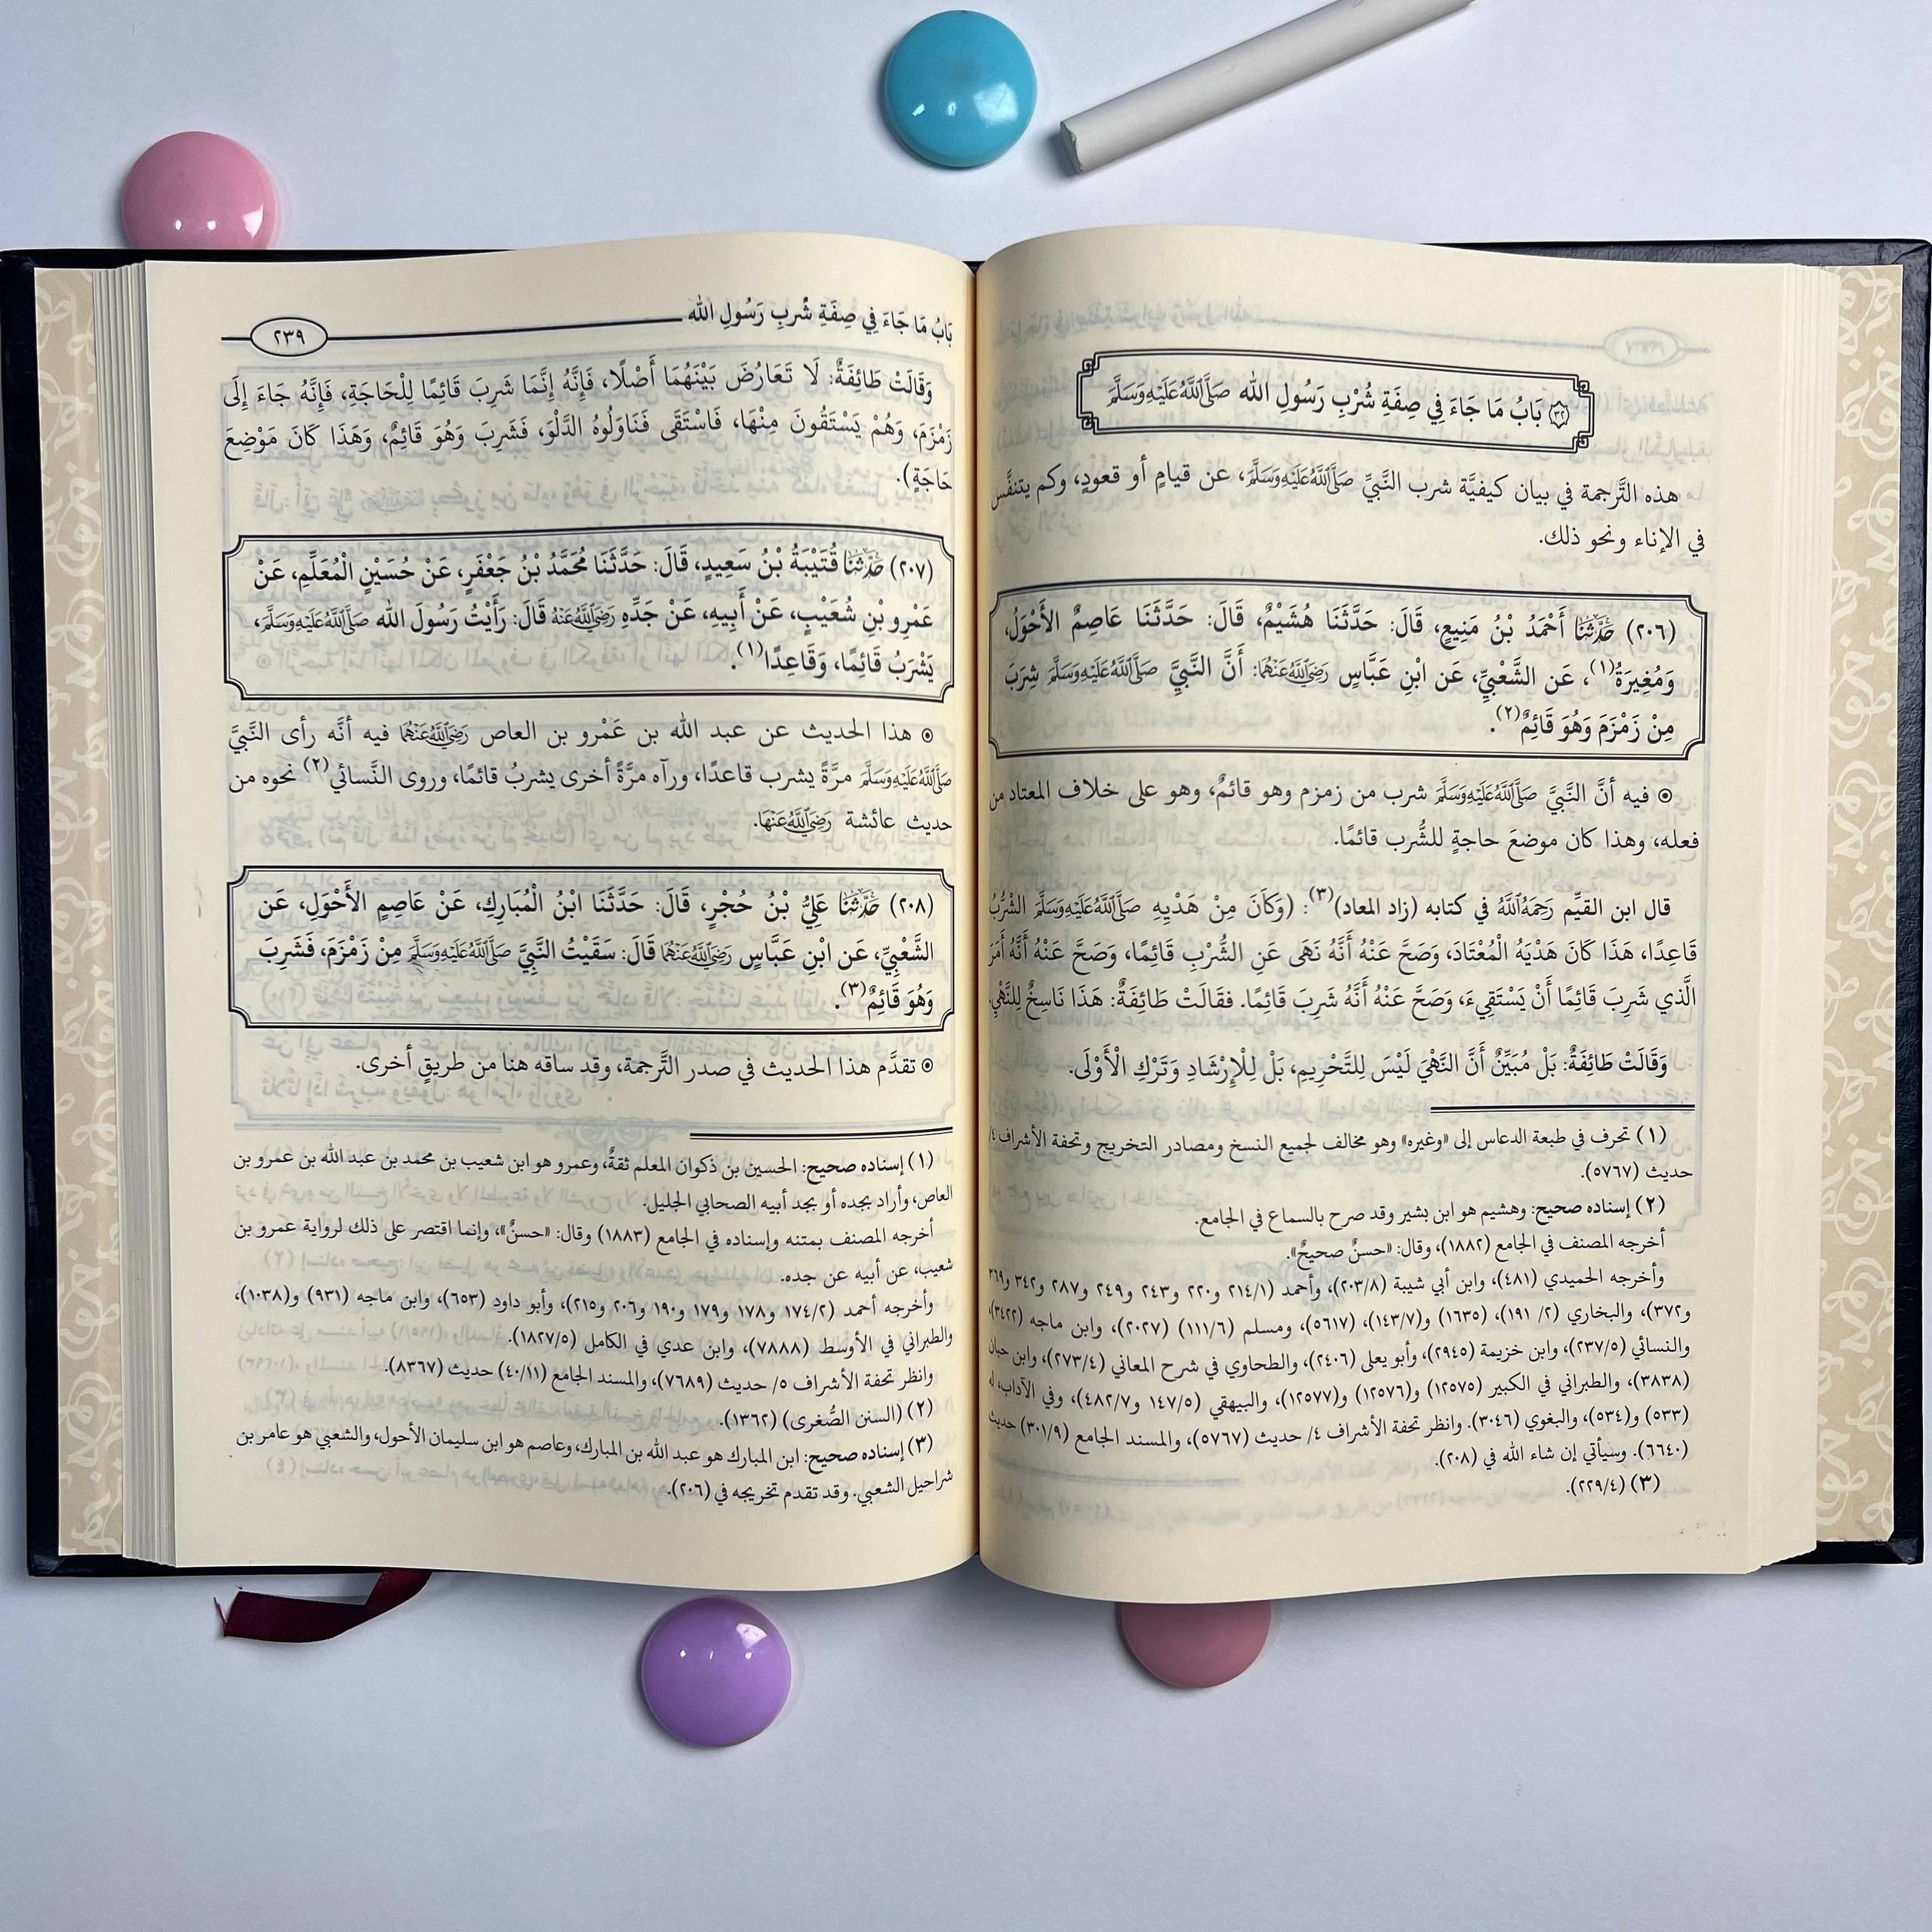 ٣٢ بَابُ مَا جَاءَ فِي صِفَةِ شُرْبِ رَسُولِ الله صَلَّى اللَّهُ عَلَيْهِ وَسَلَّمَ
هذه التَّرجمة في بيان كيفيَّة شرب النَّبيِّ صَلَّى اللَّهُ عَلَيْهِ وَسَلَّمَ، عن قيامٍ أو قعودٍ، وكم يتنفَّس
في الإناء ونحو ذلك.
(٢٠٦) حَدَّثَنَا أَحْمَدُ بْنُ مَنِيعٍ، قَالَ: حَدَّثَنَا هُشَيْمٌ، قَالَ: حَدَّثَنَا عَاصِمٌ الأَحْوَلُ،
وَمُغِيرَةُ(١)، عَن الشَّعْبِيِّ، عَن ابْنِ عَبَّاسٍ رَضِيَ اللَّهُ عَنْهُمَا: أَنَّ النَّبِيَّ صَلَّى اللَّهُ عَلَيْهِ وَسَلَّمَ شَرِبَ
مِنْ زَمْزَمَ وَهُوَ قَائِمٌ(٢).
⊙ فيه أنَّ النَّبيَّ صَلَّى اللَّهُ عَلَيْهِ وَسَلَّمَ شرب من زمزم وهو قائمٌ، وهو على خلاف المعتاد من
فعله، وهذا كان موضعَ حاجةٍ للشُّرب قائمًا.
قال ابن القيِّم رَحِمَهُ اللَّهُ في كتابه (زاد المعاد)(٣): (وَكَانَ مِنْ هَدْيِهِ صَلَّى اللَّهُ عَلَيْهِ وَسَلَّمَ الشُّرْبُ
قَاعِدًا، هَذَا كَانَ هَدْيَهُ الْمُعْتَادَ، وَصَحَّ عَنْهُ أَنَّهُ نَهَى عَنِ الشُّرْبِ قَائِمًا، وَصَحَّ عَنْهُ أَنَّهُ أَمَرَ
الَّذي شَرِبَ قَائِمًا أَنْ يَسْتَقِيءَ، وَصَحَّ عَنْهُ أَنَّهُ شَرِبَ قَائِمًا. فقَالَتْ طَائِفَةٌ: هَذَا نَاسِخٌ لِلنَّهْيِ
وَقَالَتْ طَائِفَةٌ: بَلْ مُبَيِّنٌ أَنَّ النَّهْيَ لَيْسَ لِلتَّحْرِيمِ، بَلْ لِلْإِرْشَادِ وَتَرْكِ الْأَوْلَى.
(١) تحرف في طبعة الدعاس إلى «وغيره» وهو مخالف لجميع النسخ ومصادر التخريج وتحفة الأشراف ٤/
حديث (٥٧٦٧).
(٢) إسناده صحيح: وهشيم هو ابن بشير وقد صرح بالسماع في الجامع.
أخرجه المصنف في الجامع (١٨٨٢)، وقال: «حسنٌ صحيحٌ».
وأخرجه الحميدي (٤٨١)، وابن أبي شيبة (٢٠٣/٨)، وأحمد (٢١٤/١ و٢٢٠ و٢٤٣ و٢٤٩ و٢٨٧ و٣٤٢ و٣٦٩
و٣٧٢)، والبخاري (٢/ ١٩١) (١٦٣٥) و(١٤٣/٧)، (٥٦١٧)، ومسلم (١١١/٦) (٢٠٢٧)، وابن ماجه (٣٤٢٢)،
والنسائي (٢٣٧/٥)، وابن خزيمة (٢٩٤٥)، وأبو يعلى (٢٤٠٦)، والطحاوي في شرح المعاني (٢٧٣/٤)، وابن حبان
(٣٨٣٨)، والطبراني في الكبير (١٢٥٧٥) و(١٢٥٧٦) و(١٢٥٧٧)، والبيهقي (١٤٧/٥ و٤٨٢/٧)، وفي الآداب، له
(٥٣٣) و(٥٣٤)، والبغوي (٣٠٤٦). وانظر تحفة الأشراف ٤/ حديث (٥٧٦٧)، والمسند الجامع (٣٠١/٩) حديث
(٦٦٤٠). وسيأتي إن شاء الله في (٢٠٨).
(٣) (٢٢٩/٤).
بَابُ مَا جَاءَ فِي صِفَةِ شُربِ رَسُولِ الله ٢٣٩
وَقَالَتْ طَائِفَةٌ: لَا تَعَارُضَ بَيْنَهُمَا أَصْلًا، فَإِنَّهُ إِنَّمَا شَرِبَ قَائِمًا لِلْحَاجَةِ، فَإِنَّهُ جَاءَ إِلَى
زَمْزَمَ، وَهُمْ يَسْتَقُونَ مِنْهَا، فَاسْتَقَى فَنَاوَلُوهُ الدَّلْوَ، فَشَرِبَ وَهُوَ قَائِمٌ، وَهَذَا كَانَ مَوْضِعَ
حَاجَةٍ).
(٢٠٧) حَدَّثَنَا قُتَيْبَةُ بْنُ سَعِيدٍ، قَالَ: حَدَّثَنَا مُحَمَّدُ بْنُ جَعْفَرٍ، عَنْ حُسَيْنٍ الْمُعَلِّمِ، عَنْ
عَمْرِو بْنِ شُعَيْبٍ، عَنْ أَبِيهِ، عَنْ جَدِّهِ رَضِيَ اللَّهُ عَنْهُ قَالَ: رَأَيْتُ رَسُولَ الله صَلَّى اللَّهُ عَلَيْهِ وَسَلَّمَ،
يَشْرَبُ قَائِمًا، وَقَاعِدًا(١).
⊙ هذا الحديث عن عبد الله بن عَمْرو بن العاص رَضِيَ اللَّهُ عَنْهُمَا فيه أنَّه رأى النَّبيَّ
صَلَّى اللَّهُ عَلَيْهِ وَسَلَّمَ مرَّةً يشرب قاعدًا، ورآه مرَّةً أخرى يشربُ قائمًا، وروى النَّسائي(٢) نحوه من
حديث عائشة رَضِيَ اللَّهُ عَنْهَا.
(٢٠٨) حَدَّثَنَا عَلِيُّ بْنُ حُجْرٍ، قَالَ: حَدَّثَنَا ابْنُ الْمُبَارِكِ، عَنْ عَاصِمٍ الأَحْوَلِ، عَن
الشَّعْبِيِّ، عَن ابْنِ عَبَّاسٍ رَضِيَ اللَّهُ عَنْهُمَا قَالَ: سَقَيْتُ النَّبِيَّ صَلَّى اللَّهُ عَلَيْهِ وَسَلَّمَ مِنْ زَمْزَمَ، فَشَرِبَ
وَهُوَ قَائِمٌ(٣).
⊙ تقدَّم هذا الحديث في صدر التَّرجمة، وقد ساقه هنا من طريقٍ أخرى.
(١) إسناده صحيح: الحسين بن ذكوان المعلم ثقةٌ، وعمرو هو ابن شعيب بن محمد بن عبد الله بن عمرو بن
العاص، وأراد بجده أو بجد أبيه الصحابي الجليل.
أخرجه المصنف بمتنه وإسناده في الجامع (١٨٨٣) وقال: «حسنٌ»، وإنما اقتصر على ذلك لرواية عمرو بن
شعيب، عن أبيه عن جده.
وأخرجه أحمد (١٧٤/٢ و١٧٨ و١٧٩ و١٩٠ و٢٠٦ و٢١٥)، وأبو داود (٦٥٣)، وابن ماجه (٩٣١) و(١٠٣٨)،
والطبراني في الأوسط (٧٨٨٨)، وابن عدي في الكامل (١٨٢٧/٥).
وانظر تحفة الأشراف ٥/ حديث (٧٦٨٩)، والمسند الجامع (٤٠/١١) حديث (٨٣٦٧).
(٢) (السنن الصُّغرى) (١٣٦٢).
(٣) إسناده صحيح: ابن المبارك هو عبد الله بن المبارك، وعاصم هو ابن سليمان الأحول، والشعبي هو عامر بن
شراحيل الشعبي. وقد تقدم تخريجه في (٢٠٦).